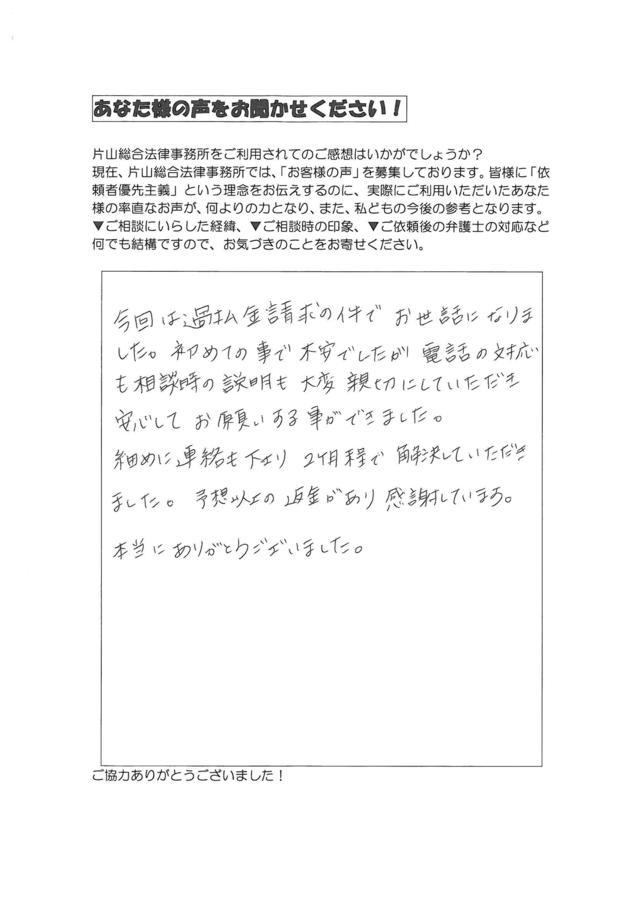 あなた様の声をお聞かせください！
片山総合法律事務所をご利用されてのご感想はいかがでしょうか？
現在、片山総合法律事務所では、「お客様の声」を募集しております。皆様に「依
頼者優先主義」という理念をお伝えするのに、実際にご利用いただいたあなた
様の率直なお声が、何よりの力となり、また、私どもの今後の参考となります。
▼ご相談にいらした経緯、▼ご相談時の印象、▼ご依頼後の弁護士の対応など
何でも結構ですので、お気づきのことをお寄せください。
今回は過払金請求の件で お世話になりま
した。初めての事で不安でしたが 電話の対応
も相談時の説明も 大変 親切にしていただき
安心して お願いする事ができました。
細めに連絡も下さり 2ヶ月程で 解決していただき
ました。予想以上の返金があり 感謝しています。
本当にありがとうございました。
ご協力ありがとうございました！